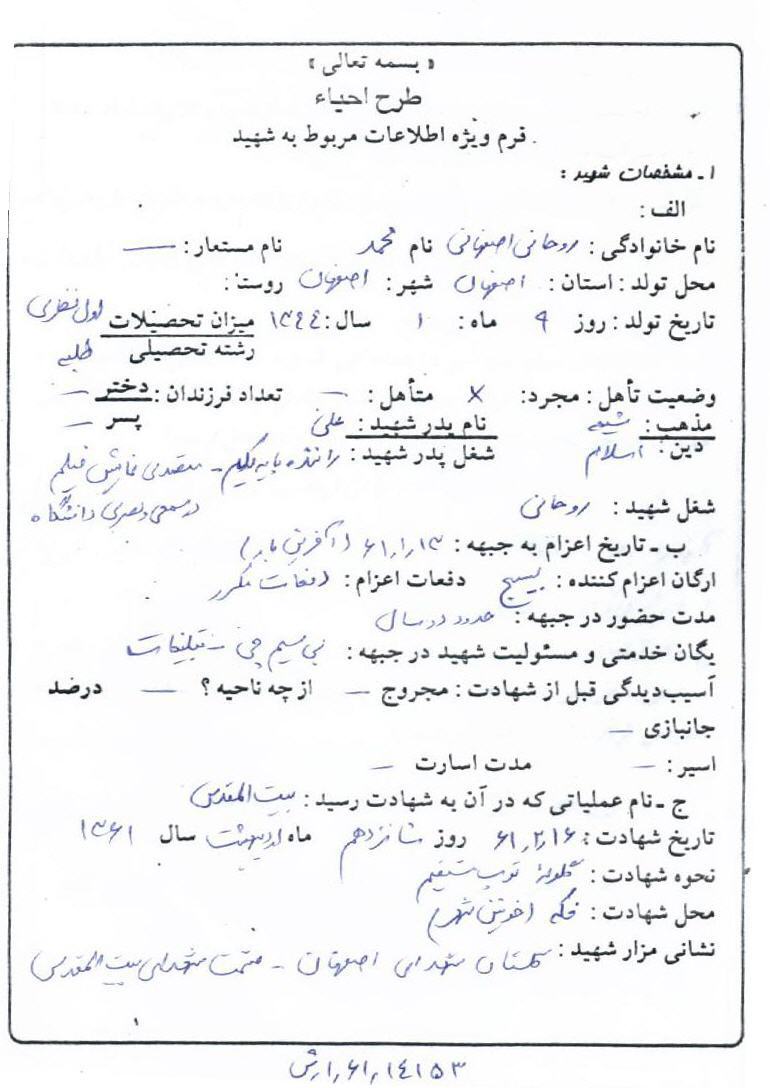 « بسمه تعالی »
طرح احیاء
فرم ویژه اطلاعات مربوط به شهید
۱ ـ مشخصات شهید :
الف :
نام خانوادگی : روحانی اصفهانی نام محمد نام مستعار : —
محل تولد : استان : اصفهان شهر : اصفهان روستا :
تاریخ تولد : روز ۹ ماه : ۱ سال : ۱۳۴۴ میزان تحصیلات اول نظری
رشته تحصیلی طلبه
وضعیت تأهل : مجرد : × متأهل : — تعداد فرزندان : دختر —
مذهب : شیعه نام پدر شهید : علی پسر —
دین : اسلام شغل پدر شهید : راننده پایه یکم - متصدی نمایش فیلم
در سمعی و بصری دانشگاه
شغل شهید : روحانی
ب ـ تاریخ اعزام به جبهه : ۶۱٫۱٫۱۳ (آخرین بار)
ارگان اعزام کننده : بسیج دفعات اعزام : دفعات مکرر
مدت حضور در جبهه : حدود دو سال
یگان خدمتی و مسئولیت شهید در جبهه : بی سیم چی - تبلیغات
آسیب‌دیدگی قبل از شهادت : مجروح — از چه ناحیه ؟ — درصد
جانبازی —
اسیر : — مدت اسارت —
ج ـ نام عملیاتی که در آن به شهادت رسید : بیت المقدس
تاریخ شهادت : ۶۱٫۲٫۱۶ روز شانزدهم ماه اردیبهشت سال ۱۳۶۱
نحوه شهادت : گلوله توپ مستقیم
محل شهادت : فکه (خونین شهر)
نشانی مزار شهید : گلستان شهدای اصفهان - قسمت شهدای بیت المقدس
۱۴۱۵۳٫۶۱٫ا٫ش